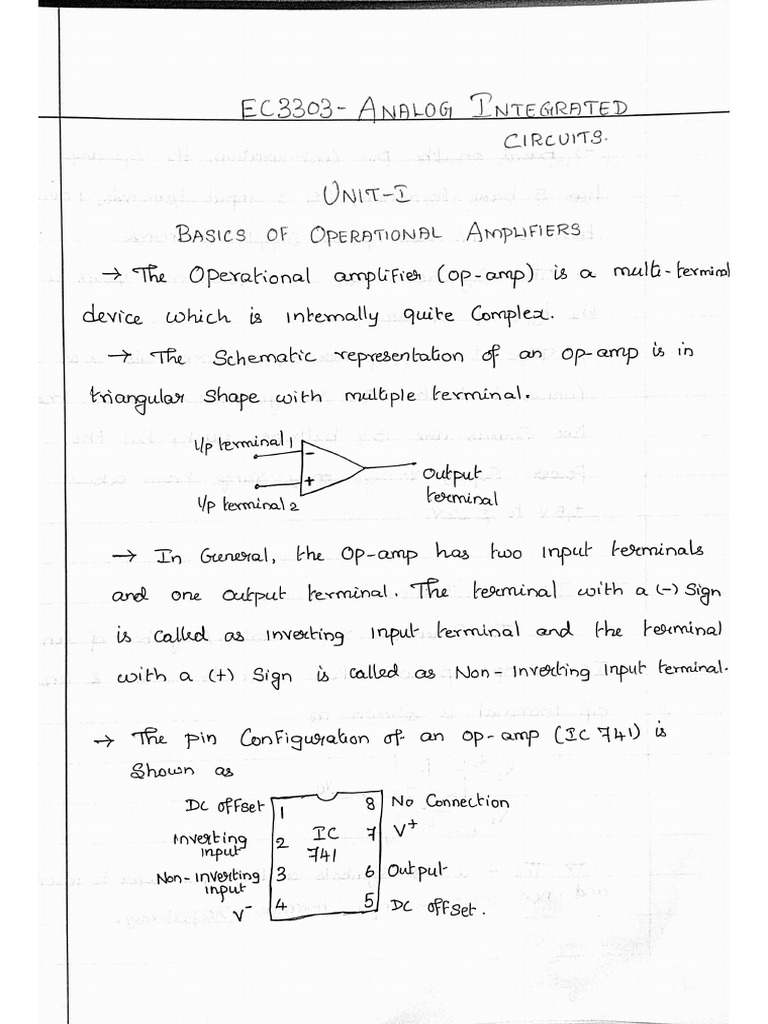 EC3303- ANALOG INTEGRATED
CIRCUITS.
UNIT-I
BASICS OF OPERATIONAL AMPLIFIERS
→ The Operational amplifier (op-amp) is a multi-terminal
device which is internally quite Complex.
→ The Schematic representation of an op-amp is in
triangular shape with multiple terminal.
I/p terminal 1
-
+
Output
terminal
I/p terminal 2
→ In General, the Op-amp has two input terminals
and one output terminal. The terminal with a (-) Sign
is called as inverting input terminal and the terminal
with a (+) Sign is called as Non-inverting input terminal.
→ The pin Configuration of an op-amp (IC 741) is
Shown as
DC offset 1 8 No Connection
Inverting input 2 IC 741 7 V+
Non-inverting input 3 6 Output
V- 4 5 DC offset.